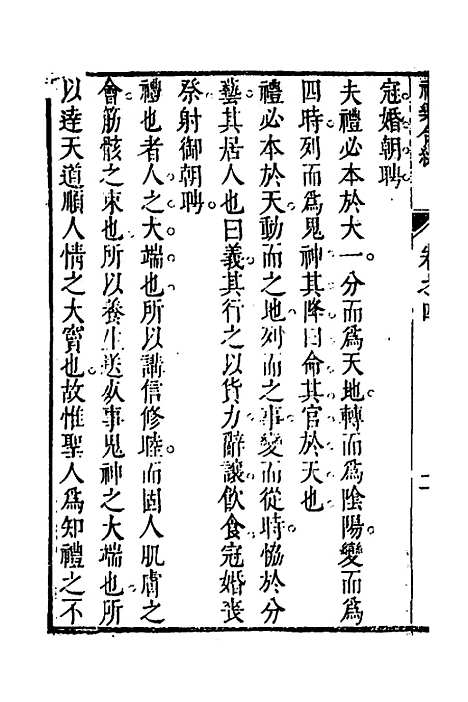 冠婚朝聘
夫禮必本於大一分而爲天地轉而爲陰陽變而爲
四時列而爲鬼神其降曰命其官於天也
禮必本於天動而之地列而之事變而從時恊於分
藝其居人也曰義其行之以貨力辭讓飲食冠婚丧
祭射御朝聘
禮也者人之大端也所以講信修睦而固人肌膚之
會筋骸之束也所以養生送死事鬼神之大端也所
以逹天道順人情之大竇也故惟聖人爲知禮之不
卷之四